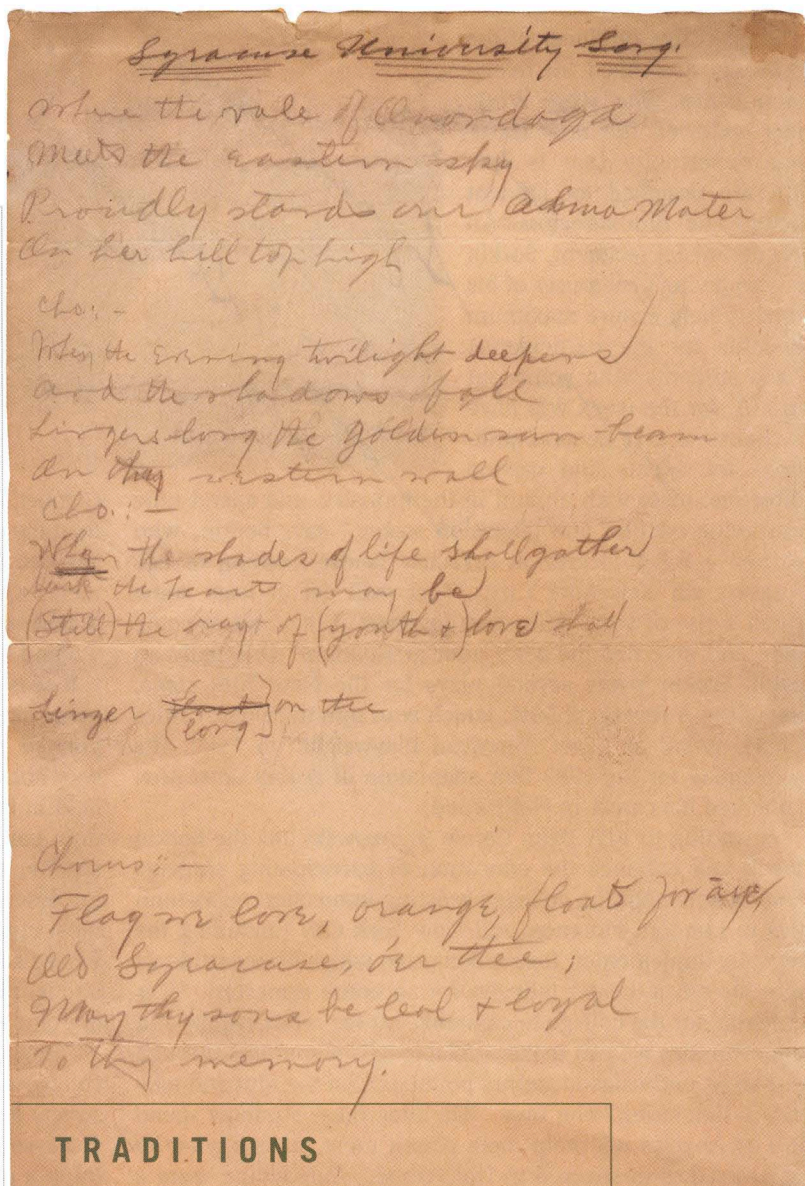 Syracuse University Song.
Where the vale of Onondaga
Meets the eastern sky
Proudly stands our Alma Mater
On her hill top high
Cho:-
When the evening twilight deepens
and the shadows fall
Lingers long the golden sun beam
On thy western wall
Cho.:-
When the shades of life shall gather
Dark the heart may be
(Still) the rays of (youth +) love shall
Linger long on thee
Chorus:-
Flag we love, orange, floats for aye,
Old Syracuse, o'er thee;
May thy sons be leal + loyal
To thy memory.
TRADITIONS